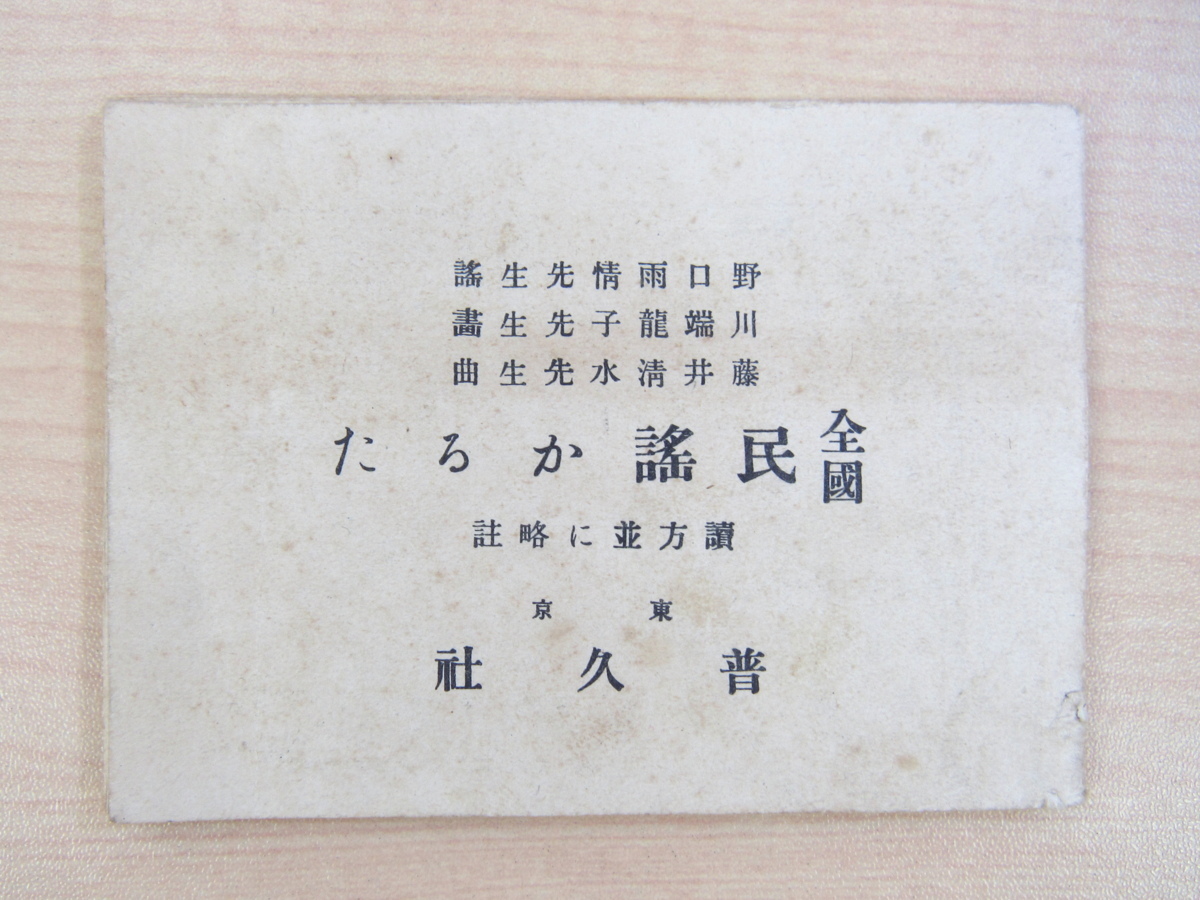 野口雨情先生謠
川端龍子先生畵
藤井淸水先生曲
全國民謠かるた
讀方並に略註
東京
普久社